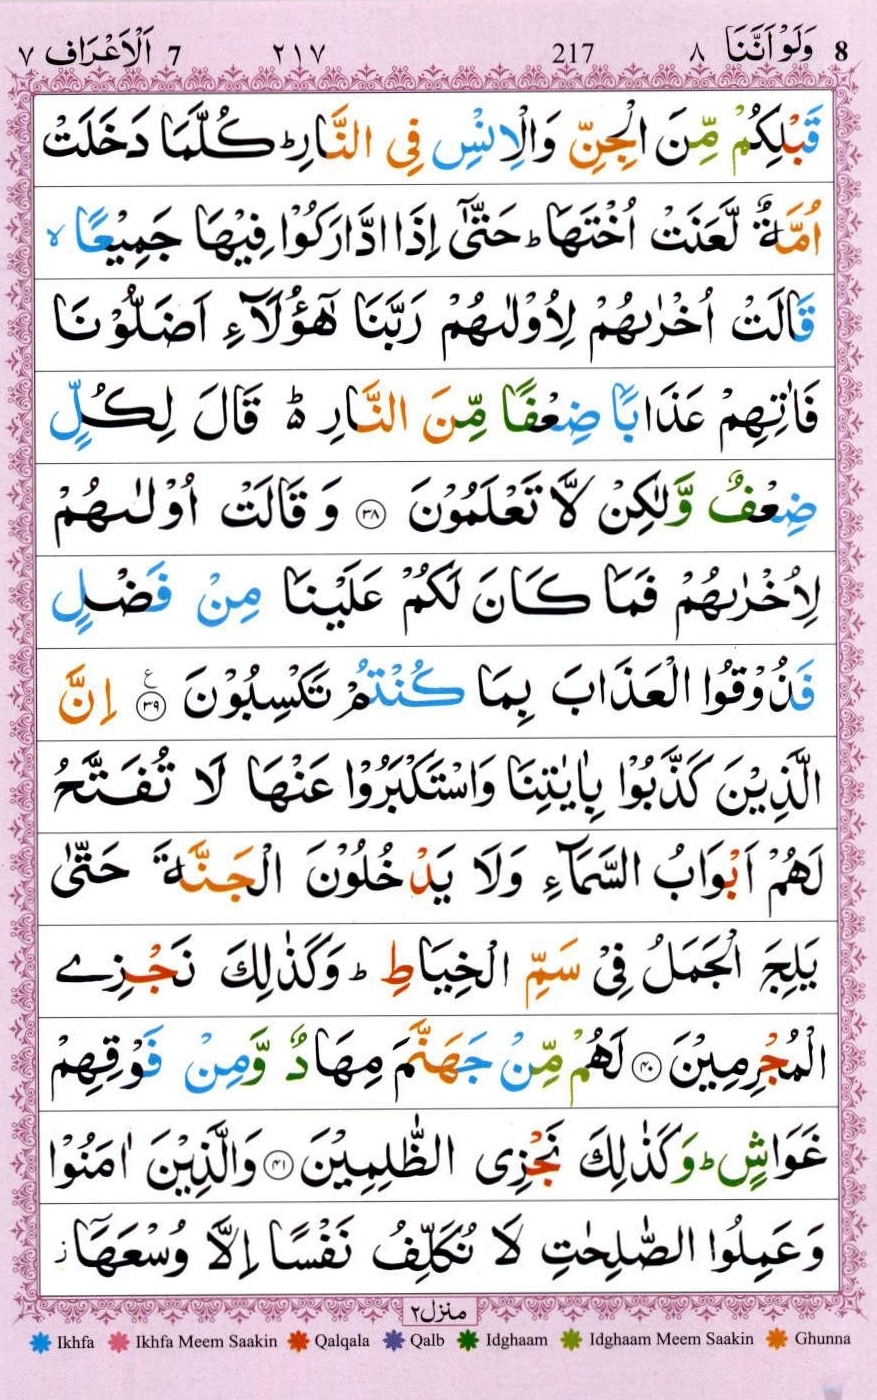 8 وَلَوْ اَنَّنَا ٨ 217 ٢١٧ 7 اَلْاَعْرَاف ٧
قَبْلِكُمْ مِّنَ الْجِنِّ وَالْاِنْسِ فِى النَّارِ ؕ كُلَّمَا دَخَلَتْ
اُمَّةٌ لَّعَنَتْ اُخْتَهَا ؕ حَتّٰۤى اِذَا ادَّارَكُوْا فِيْهَا جَمِيْعًا ۙ
قَالَتْ اُخْرٰىهُمْ لِاُوْلٰىهُمْ رَبَّنَا هٰۤؤُلَآءِ اَضَلُّوْنَا
فَاٰتِهِمْ عَذَابًا ضِعْفًا مِّنَ النَّارِ ؕ قَالَ لِكُلٍّ
ضِعْفٌ وَّلٰكِنْ لَّا تَعْلَمُوْنَ ﴿۳۸﴾ وَقَالَتْ اُوْلٰىهُمْ
لِاُخْرٰىهُمْ فَمَا كَانَ لَكُمْ عَلَيْنَا مِنْ فَضْلٍ
فَذُوْقُوا الْعَذَابَ بِمَا كُنْتُمْ تَكْسِبُوْنَ ﴿۳۹﴾ ع اِنَّ
الَّذِيْنَ كَذَّبُوْا بِاٰيٰتِنَا وَاسْتَكْبَرُوْا عَنْهَا لَا تُفَتَّحُ
لَهُمْ اَبْوَابُ السَّمَآءِ وَلَا يَدْخُلُوْنَ الْجَنَّةَ حَتّٰى
يَلِجَ الْجَمَلُ فِىْ سَمِّ الْخِيَاطِ ؕ وَكَذٰلِكَ نَجْزِے
الْمُجْرِمِيْنَ ﴿۴۰﴾ لَهُمْ مِّنْ جَهَنَّمَ مِهَادٌ وَّمِنْ فَوْقِهِمْ
غَوَاشٍ ؕ وَكَذٰلِكَ نَجْزِى الظّٰلِمِيْنَ ﴿۴۱﴾ وَالَّذِيْنَ اٰمَنُوْا
وَعَمِلُوا الصّٰلِحٰتِ لَا نُكَلِّفُ نَفْسًا اِلَّا وُسْعَهَاۤ ز
منزل ٢
Ikhfa Ikhfa Meem Saakin Qalqala Qalb Idghaam Idghaam Meem Saakin Ghunna